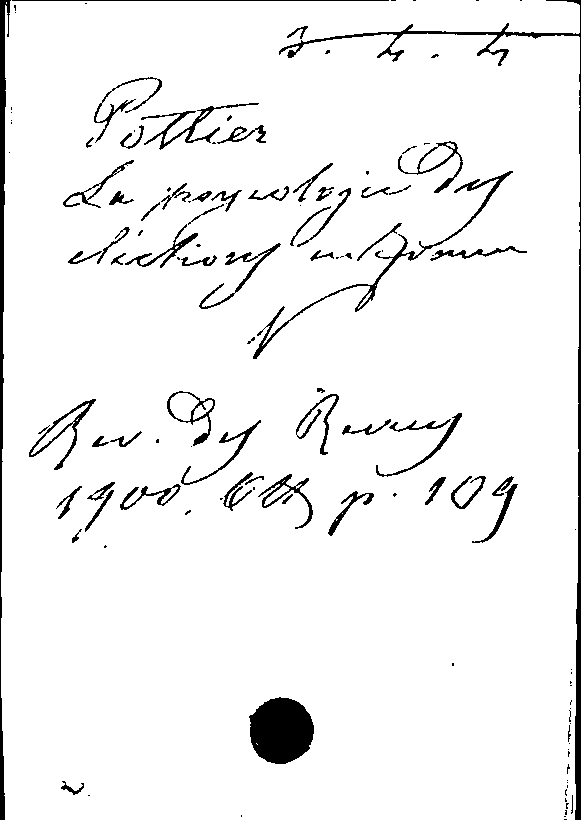 3. 4. 4
Pottier
La psycologie des
élections
Rev. des Revues
1900. p. 109